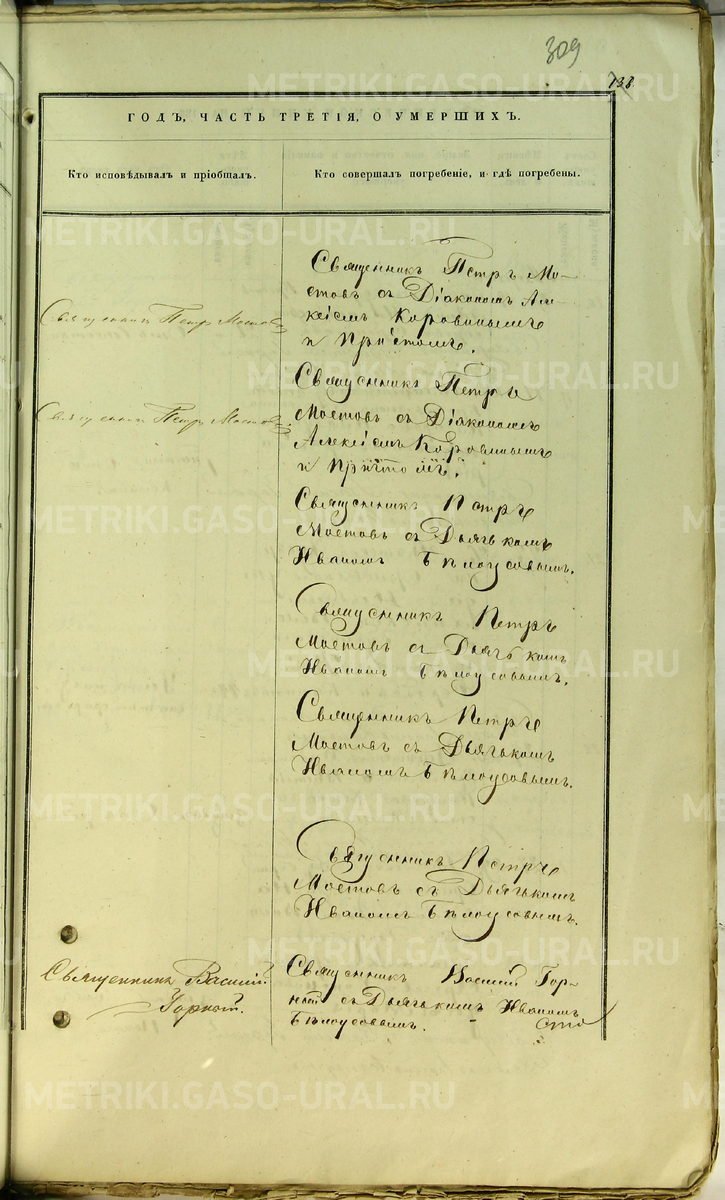 309
138.
ГОДЪ, ЧАСТЬ ТРЕТІЯ, О УМЕРШИХЪ.
Кто исповѣдывалъ и пріобщалъ.
Кто совершалъ погребеніе, и гдѣ погребены.
Священникъ Петръ Мо-
стовъ съ Діакономъ Але-
ксіемъ Коровинымъ
и Причтомъ.
Священникъ Петръ Мостовъ
Священникъ Петръ
Мостовъ съ Діакономъ
Алексіемъ Коровинымъ
и Причтомъ.
Священникъ Петръ Мостовъ.
Священникъ Петръ
Мостовъ съ Дьячькомъ
Иваномъ Бѣлоусовымъ.
Священникъ Петръ
Мостовъ съ Дьячькомъ
Иваномъ Бѣлоусовымъ.
Священникъ Петръ
Мостовъ съ Дьячькомъ
Иваномъ Бѣлоусовымъ.
Священникъ Петръ
Мостовъ съ Дьячькомъ
Иваномъ Бѣлоусовымъ.
Священникъ Василій
Священникъ Василій
съ Дьячькомъ Иваномъ
Бѣлоусовымъ.
METRIKI.GASO-URAL.RU